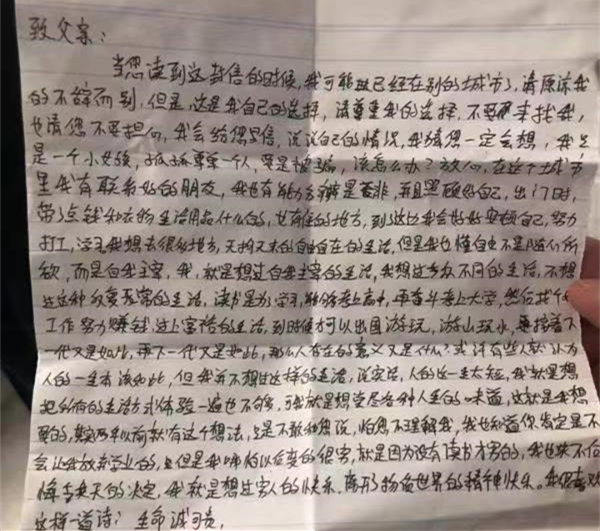 致父亲：
当您读到这封信的时候，我可能已经在别的城市了，请原谅我
的不辞而别，但是，这是我自己的选择，请尊重我的选择，不要来找我，
也请您不要担心，我会给您写信，说说自己的情况，我猜您一定会想，我只
是一个小女孩，孤孤单单一个人，要是被骗，该怎么办？放心，在这个城市
里我有联系好的朋友，我也有能力去辨是否非，并且照顾好自己，出门时，
带了点钱和衣物生活用品什么的，也有住的地方，到了这边我会好好安顿自己，努力
打工，学习我想去很多地方，天南又北的自由自在的生活，但是我也懂自由不是随心所
欲，而是自我主宰，我，就是想过自我主宰的生活，我想过多众不同的生活，不想
过这种反复无常的生活，读书是为了学习，能够考上高中，再奋斗考上大学，然后找个
工作努力赚钱过上富裕的生活，到时候才可以出国游玩，游山玩水，再接着下
一代又是如此，再下一代又是如此，那么人存在的意义又是什么？或许有些人就认为
人的一生本该如此，但我并不想过这样的生活，说实话，人的这一生太短，我就是想
把所有的生活方式体验一遍也不够，可我就是想尝尽各种人生的味道，这就是我想
要的，其实两年以前就有这个想法，只是不敢和您说，怕您不理解我，我也知道你肯定是不
会让我放弃学业的，但是我哪怕以后变的很穷，就是因为没有读书才穷的，我也决不后
悔当天的决定，我就是想过穷人的快乐，离形物质世界的精神快乐。我很喜欢
这样一首诗：生命诚可贵，